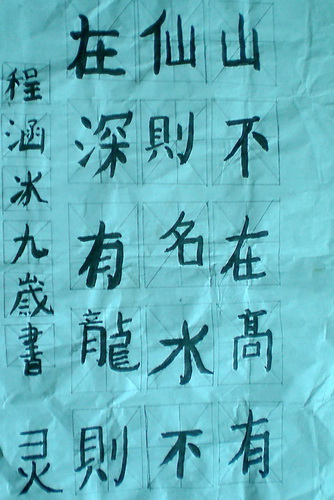 山不在高有
仙則名水不
在深有龍則
灵
程涵冰九歲書